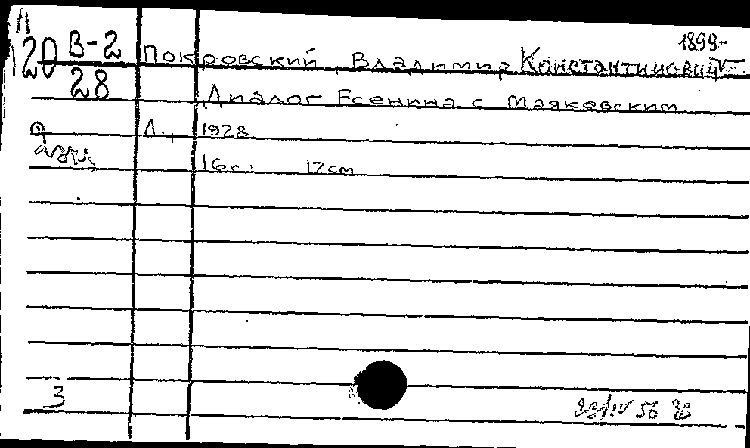 1899-
Л
120 В-2 Покровский, Владимир Константинович
28
Диалог Есенина с Маяковским
Л., 1928
16 с. 17 см
3
56